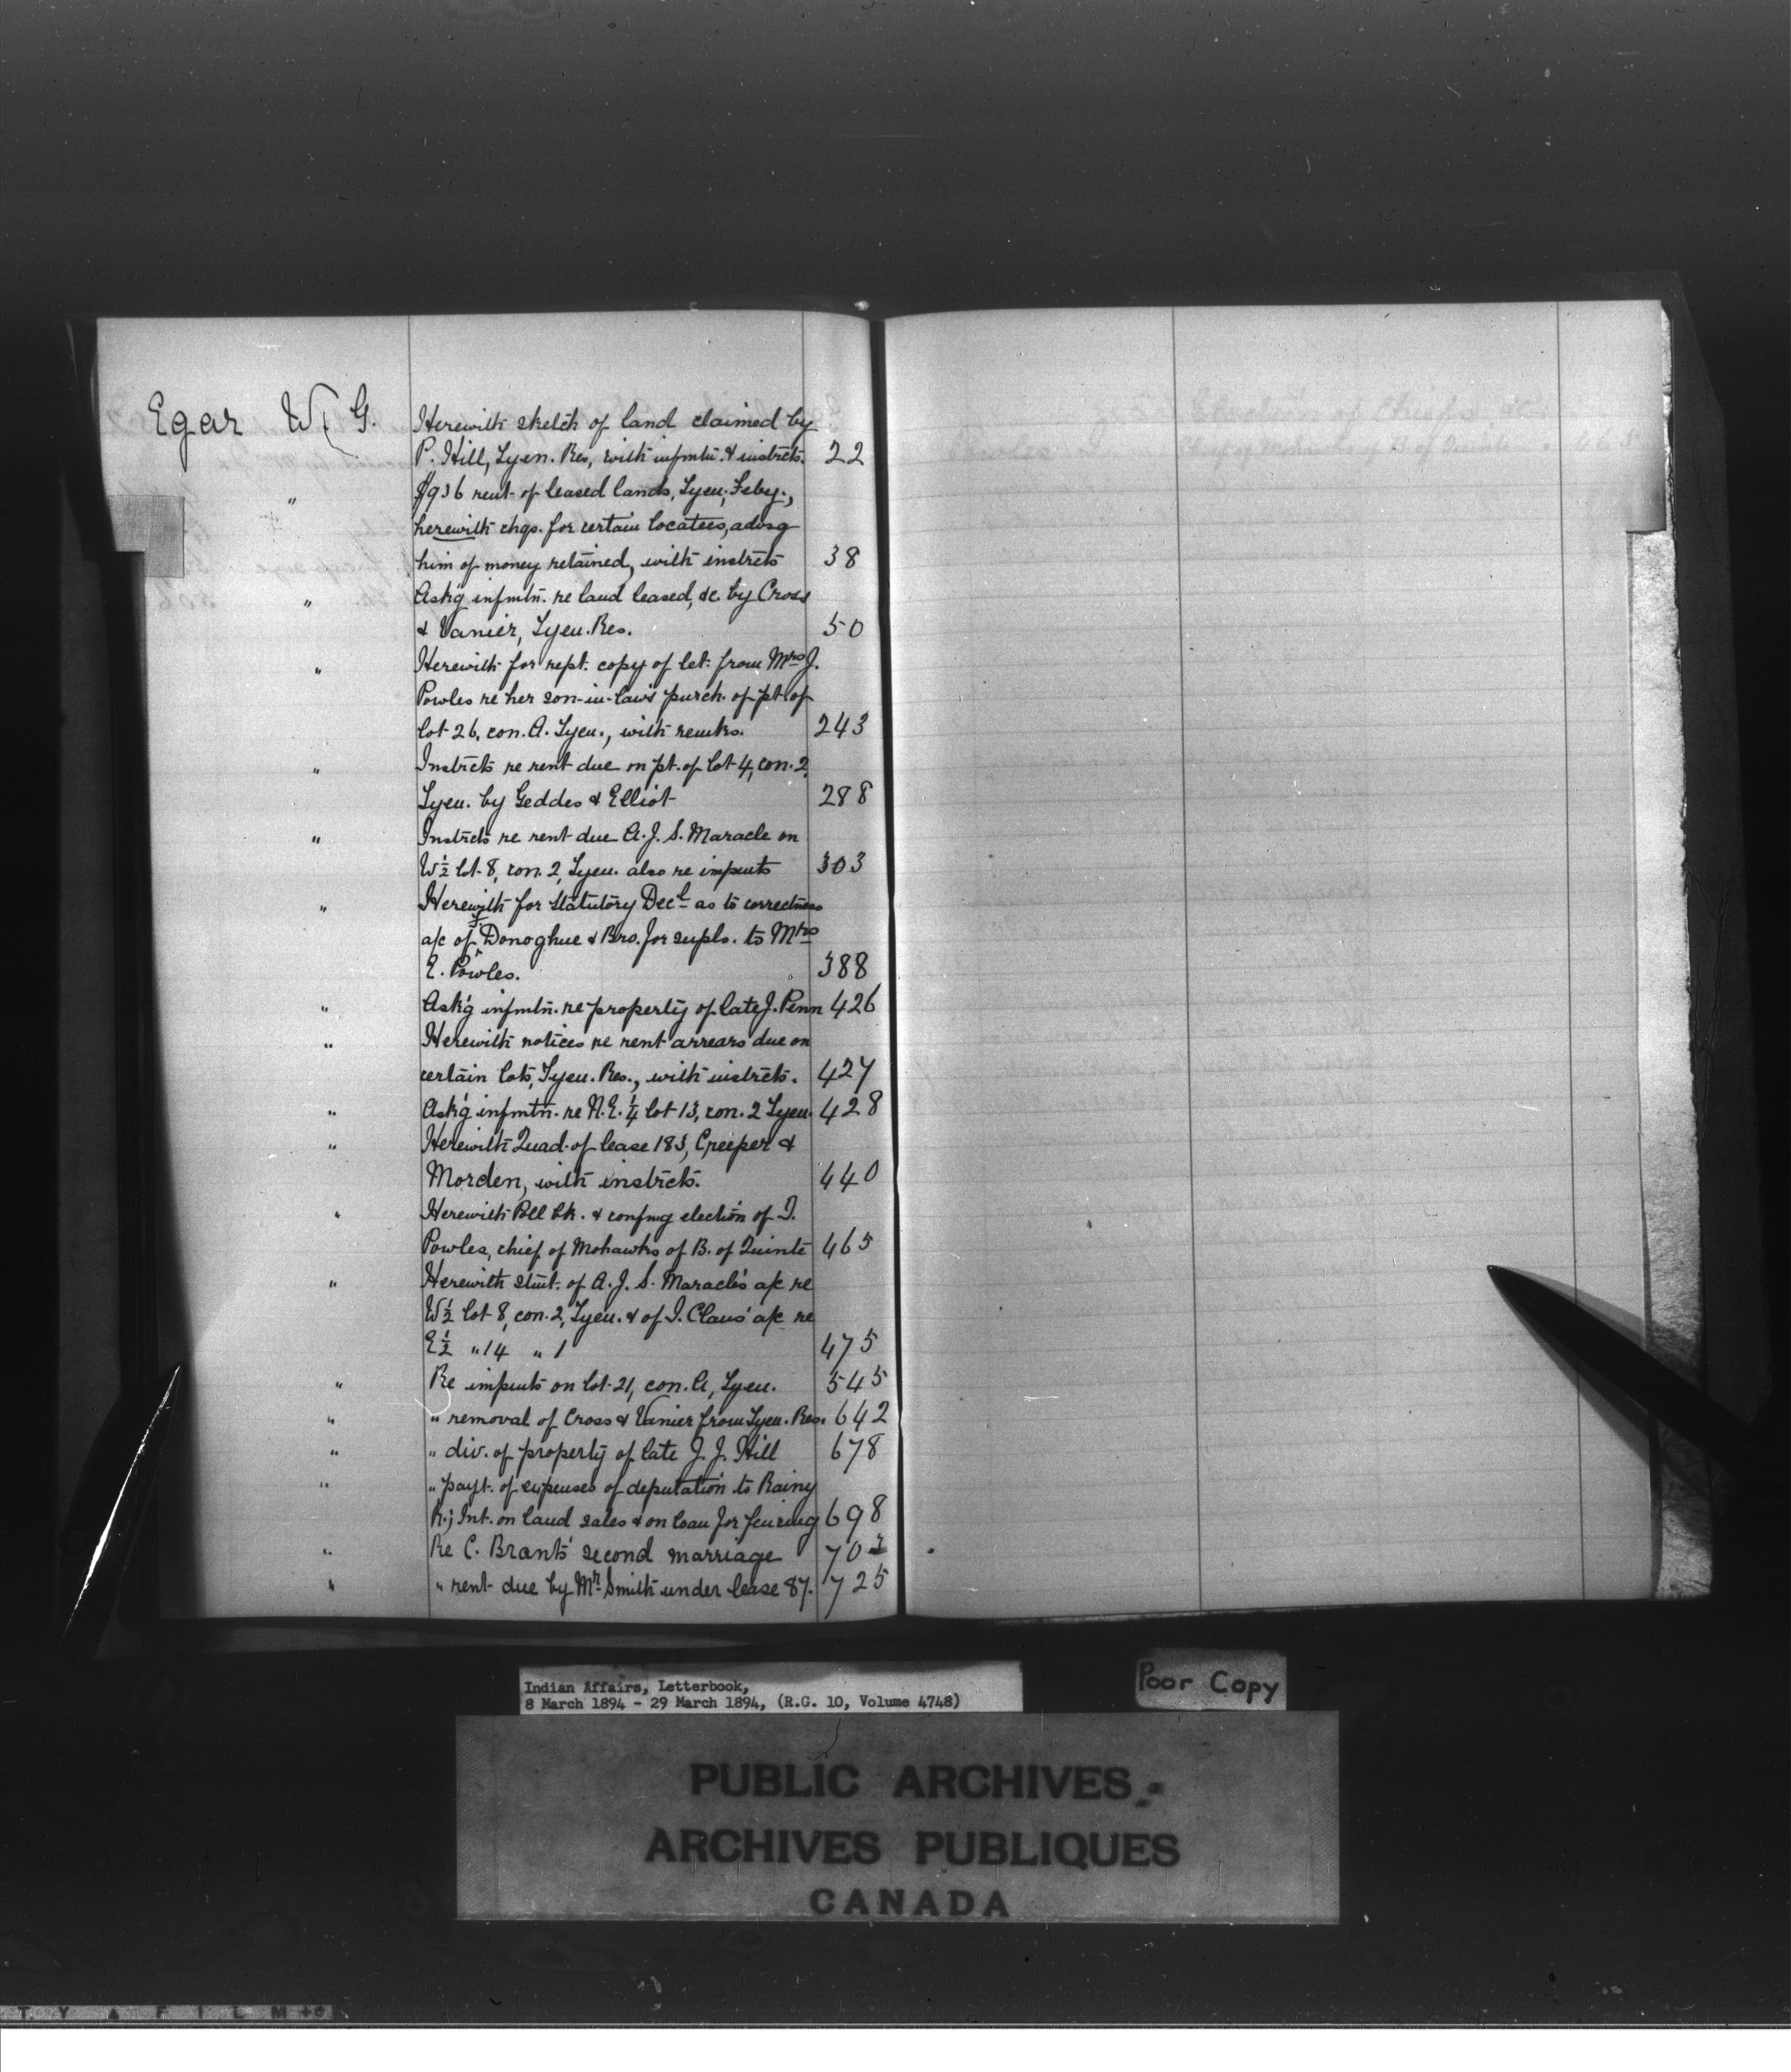 Egar W. G. Herewith sketch of land claimed by
P. Hill, Tyen. Res, with infmtn. & instrcts. 22
" $936 rent of leased lands, Tyen., Feby.,
herewith chqs. for certain locatees, advsg
him of money retained, with instrcts 38
" Ask'g infmtn. re land leased, &c. by Cross
& Vanier, Tyen. Res. 50
" Herewith for rept. copy of let. from Mrs J.
Powles re her son-in-law's purch. of pt. of
lot 26, con. A. Tyen., with remks. 243
" Instrcts re rent due on pt. of lot 4, con. 2,
Tyen. by Geddes & Elliot 288
" Instrcts re rent due A. J. S. Maracle on
W½ lot 8, con. 2, Tyen. also re impmts 303
" Herewith for Statutory Decl as to correctness
a/c of Donoghue & Bro. for supls. to Mrs
E. Powles. 388
" Ask'g infmtn. re property of late J. Penn 426
" Herewith notices re rent arrears due on
certain lots, Tyen. Res., with instrcts. 427
" Ask'g infmtn. re N.E. ¼ lot 13, con. 2 Tyen. 428
" Herewith Quad. of lease 183, Creeper &
Morden, with instrcts. 440
" Herewith Poll bk. & confmg election of I.
Powles, chief of Mohawks of B. of Quinte 465
" Herewith stmt. of A. J. S. Maracle's a/c re
W½ lot 8, con. 2, Tyen. & of I. Claus' a/c re
E½ " 14 " 1 475
" Re impmts on lot 21, con. A, Tyen. 545
" " removal of Cross & Vanier from Tyen. Res. 642
" " div. of property of late J. J. Hill 678
" " payt. of expenses of deputation to Rainy
R.; Int. on land sales & on loan for fencing 698
" Re C. Brant's second marriage 703
" " rent due by Mr. Smith under lease 87. 725
Indian Affairs, Letterbook,
8 March 1894 - 29 March 1894, (R.G. 10, Volume 4748)
Poor Copy
PUBLIC ARCHIVES
ARCHIVES PUBLIQUES
CANADA